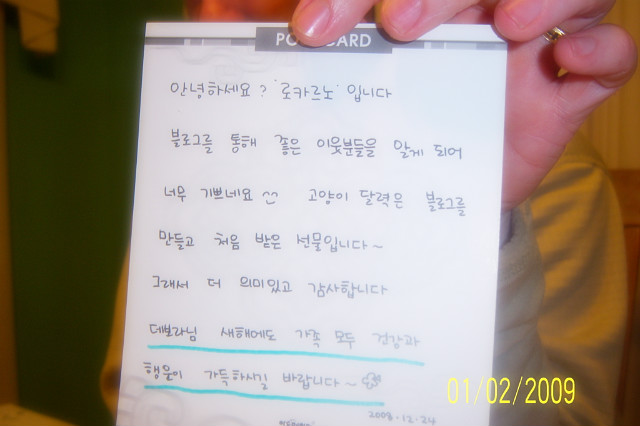 POSTCARD
안녕하세요? '로카르노' 입니다
블로그를 통해 좋은 이웃분들을 알게 되어
너무 기쁘네요 ^^ 고양이 달력은 블로그를
만들고 처음 받은 선물입니다~
그래서 더 의미있고 감사합니다
데보라님 새해에도 가족 모두 건강과
행운이 가득하시길 바랍니다~
2008.12.24
01/02/2009